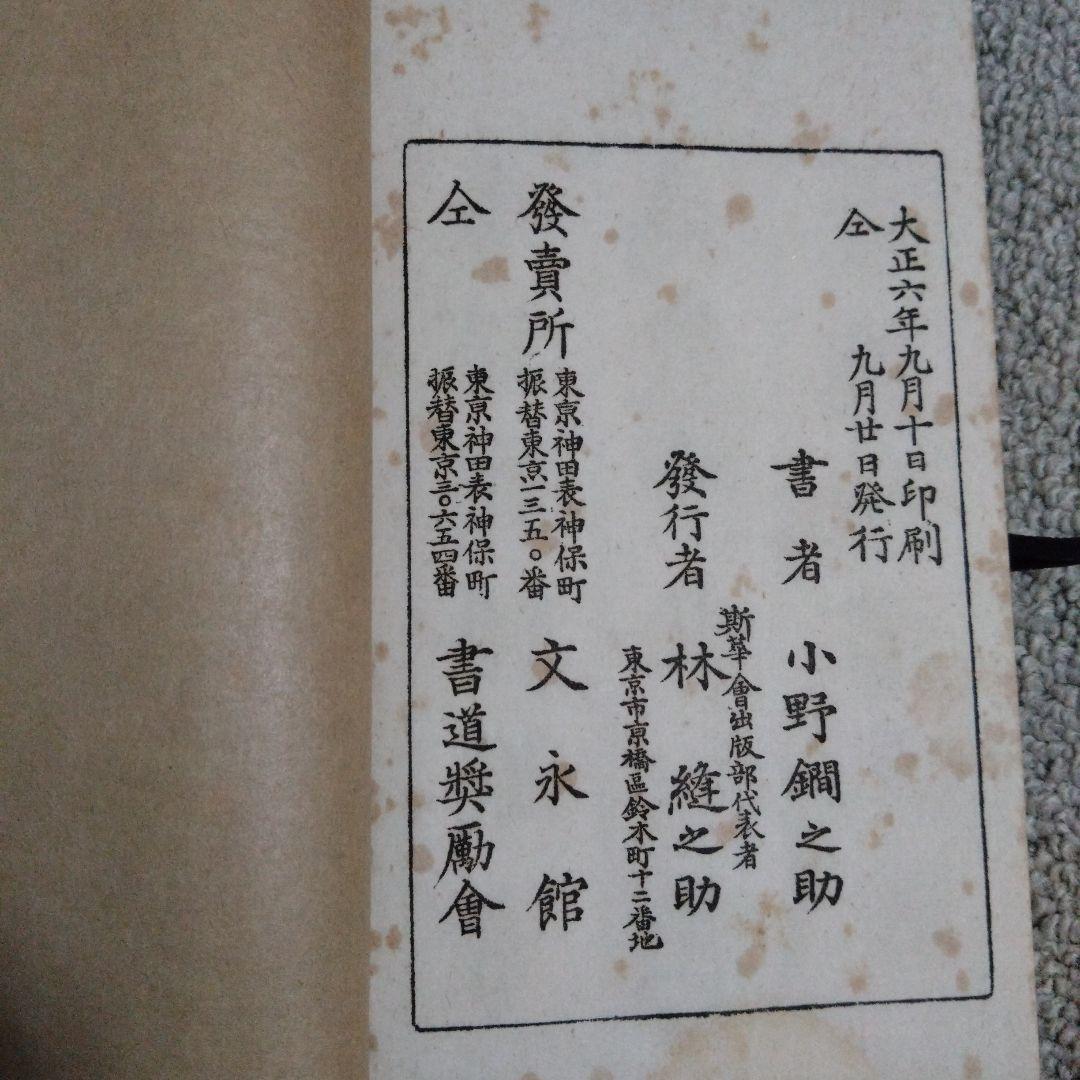 大正六年九月十日印刷
仝九月廿日発行
書者 小野鐗之助
斯華會出版部代表者
發行者 林縫之助
東京市京橋區鈴木町十二番地
發賣所 東京神田表神保町
振替東京一三五〇番
文永館
仝 東京神田表神保町
振替東京三〇六五四番
書道奬勵會